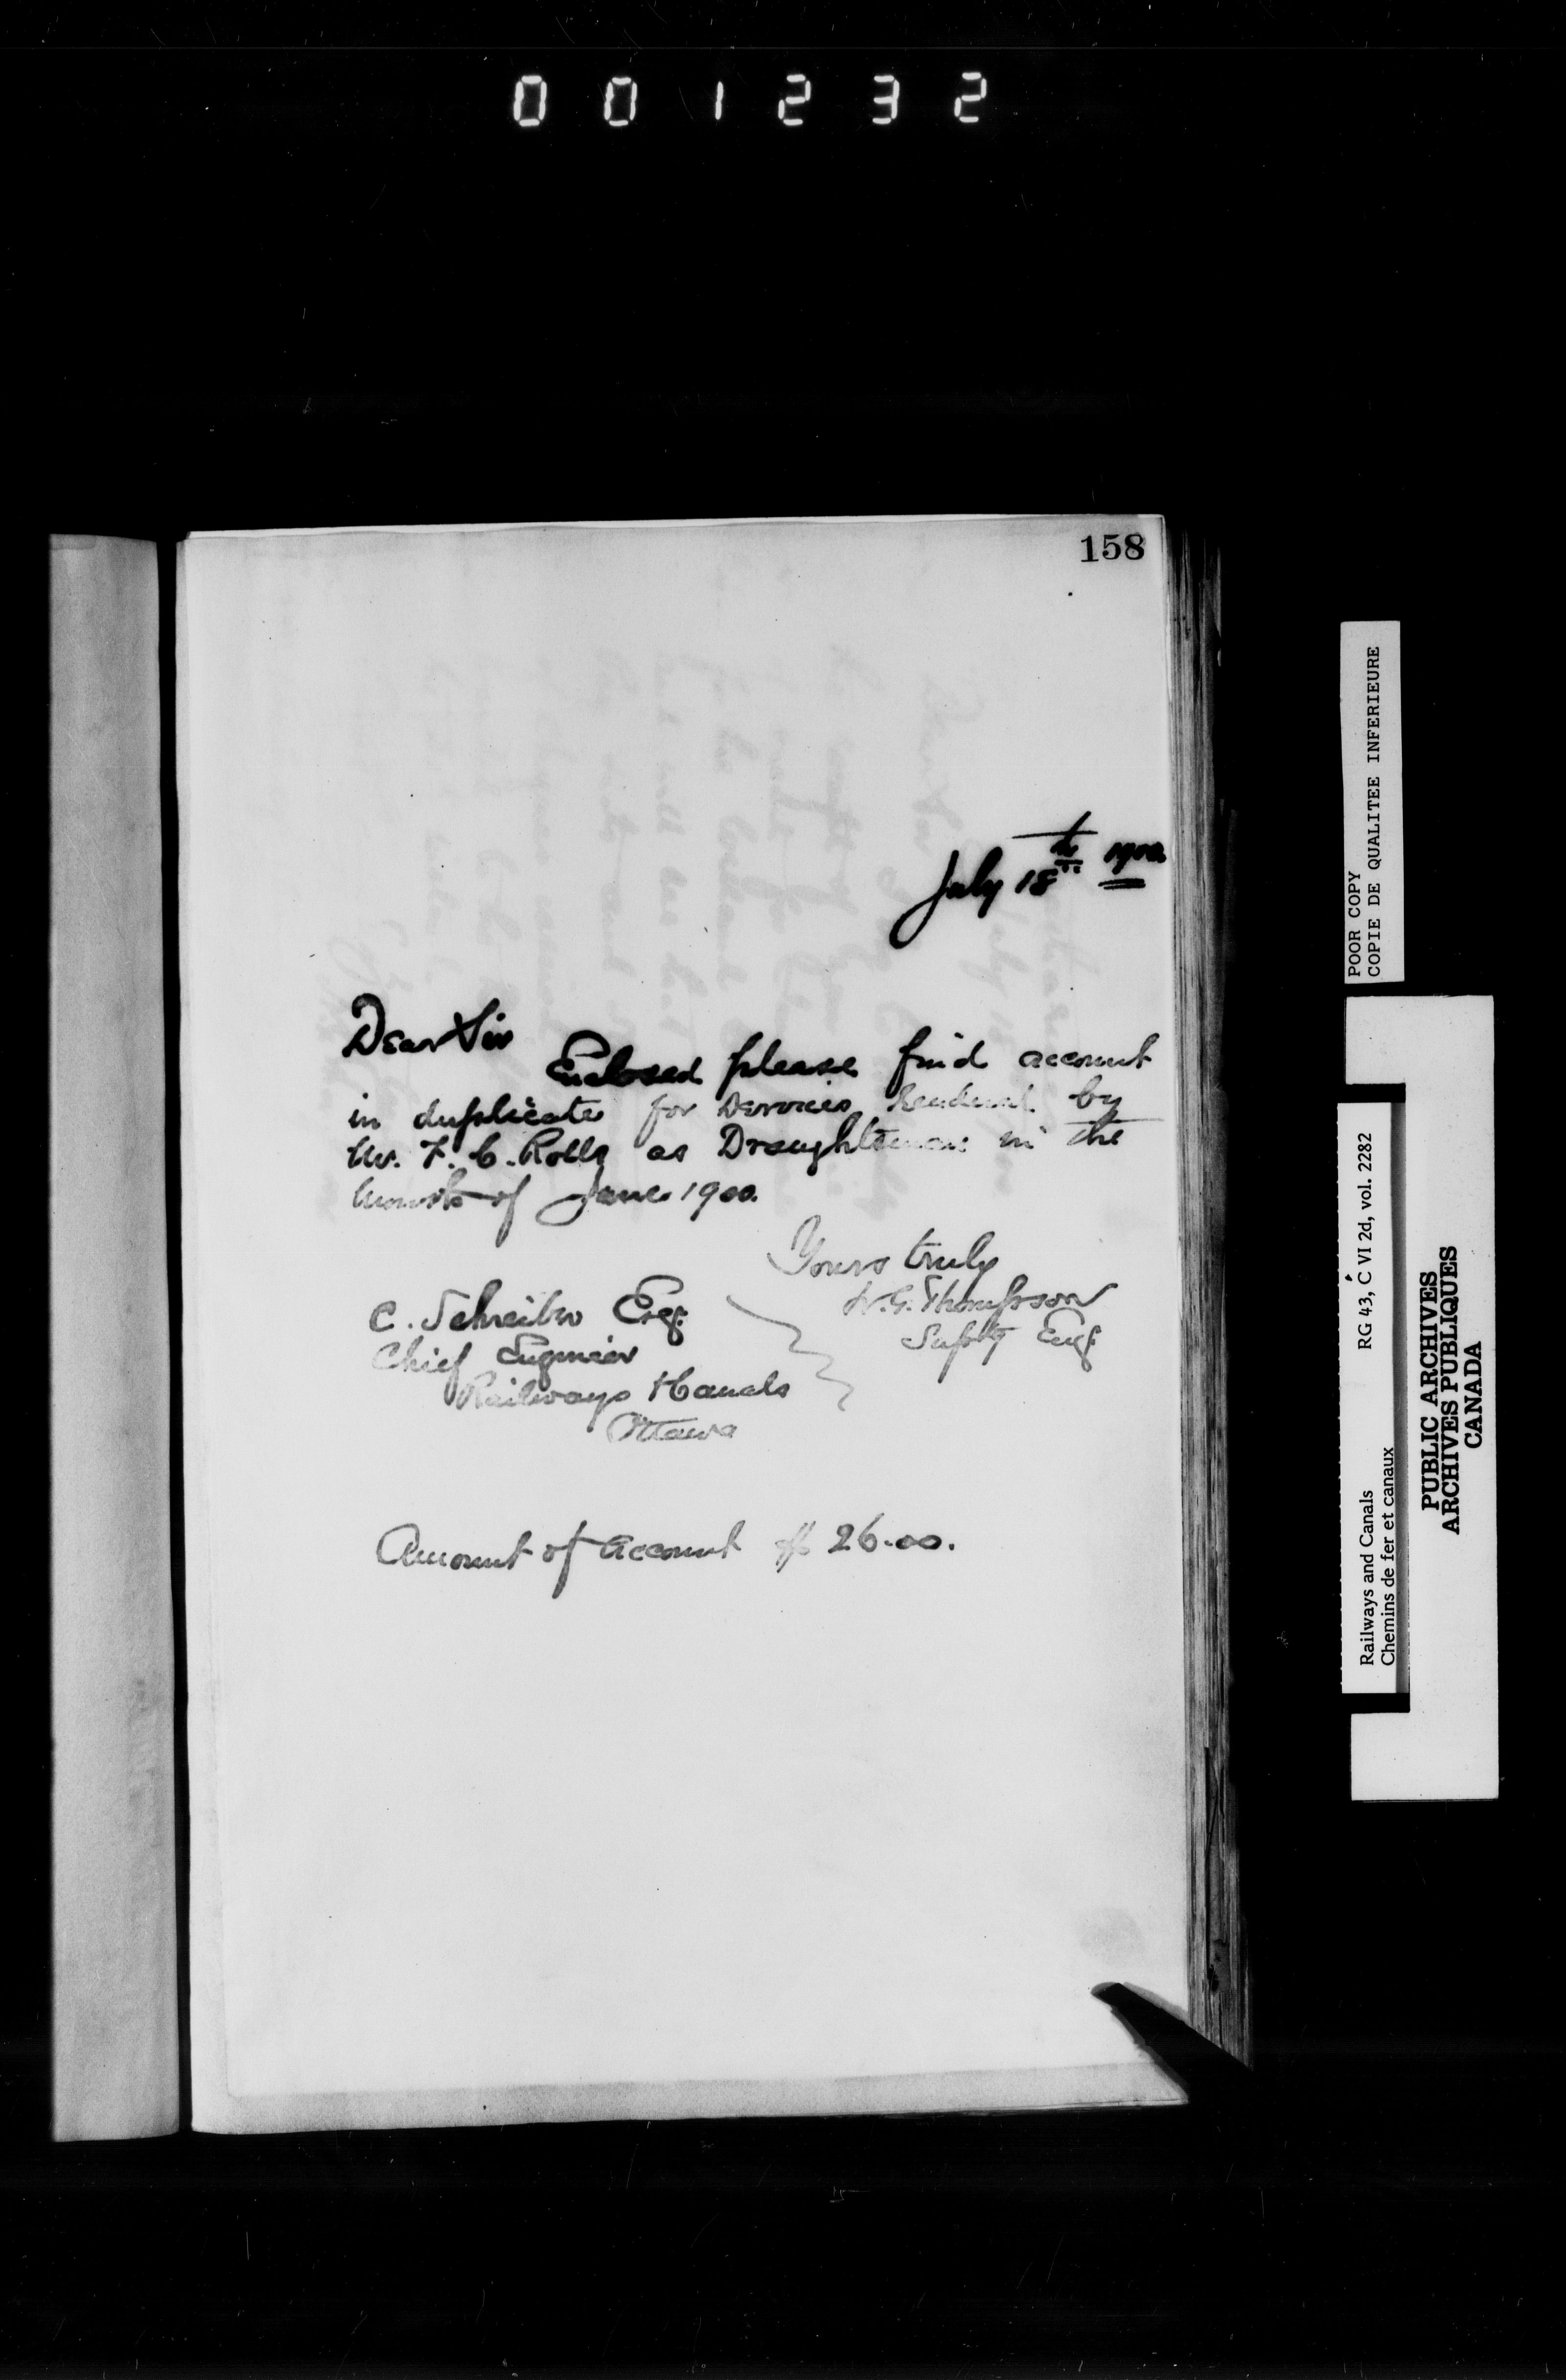 001232
158
July 18th 1900
Dear Sir
Enclosed please find account
in duplicate for services rendered by
Mr. F. C. Rolls as Draughtsman in the
month of June 1900.
Yours truly
W. G. Thompson
Supt'g Eng.
C. Schreiber Esq.
Chief Engineer
Railways & Canals
Ottawa
Amount of Account $ 26.00.
POOR COPY
COPIE DE QUALITEE INFERIEURE
RG 43, C VI 2d, vol. 2282
Railways and Canals
Chemins de fer et canaux
PUBLIC ARCHIVES
ARCHIVES PUBLIQUES
CANADA